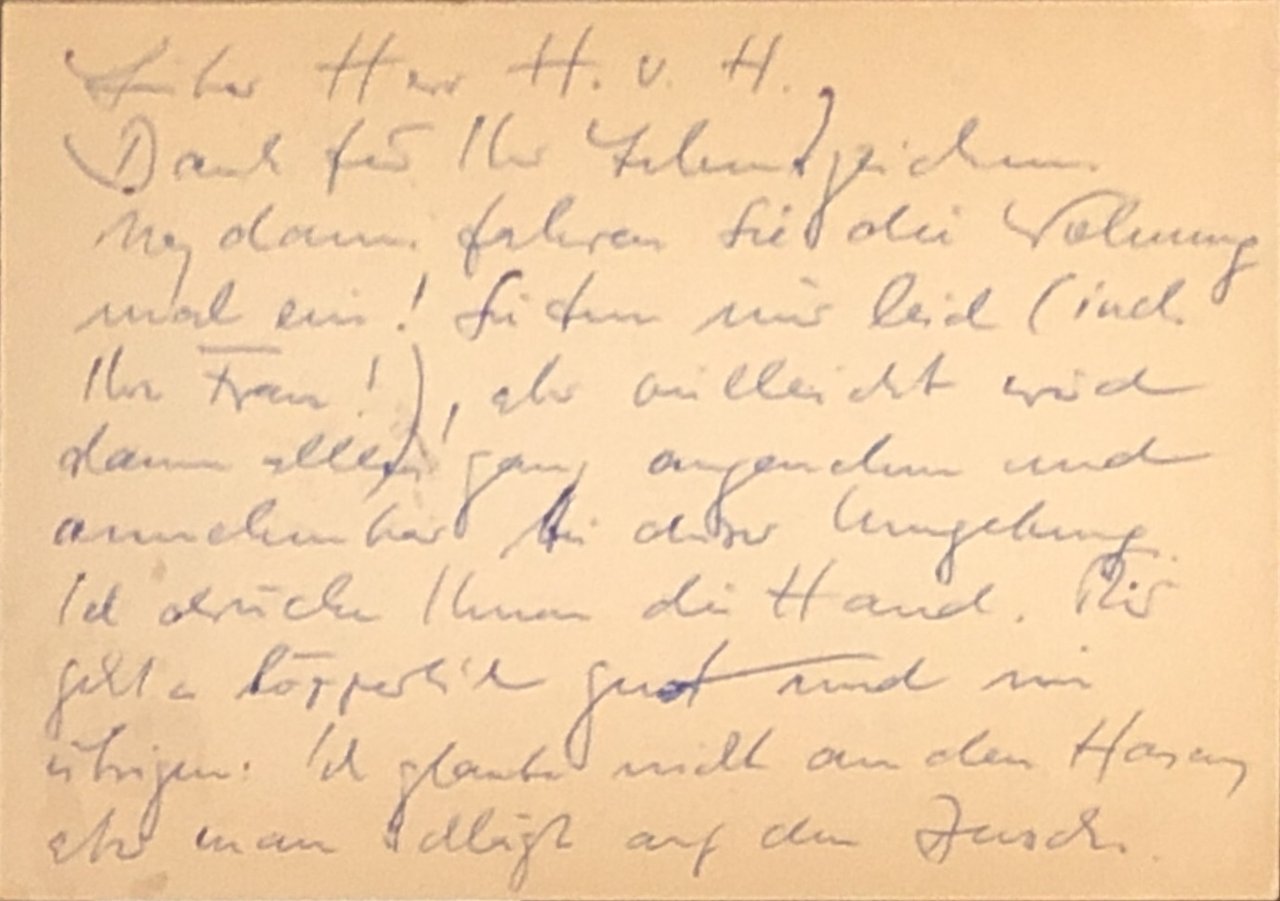 Lieber Herr H. v. H.,
Dank für Ihr Lebenszeichen
Na, dann fahren Sie die Wohnung
mal ein! Sie tun mir leid (incl.
Ihre Frau!), aber vielleicht wird
dann alles ganz angenehm und
annehmbar in dieser Umgebung.
Ich drücke Ihnen die Hand. Mir
geht es körperlich gut und im
übrigen: Ich glaube nicht an den Hasen,
aber man schlägt auf den Busch.